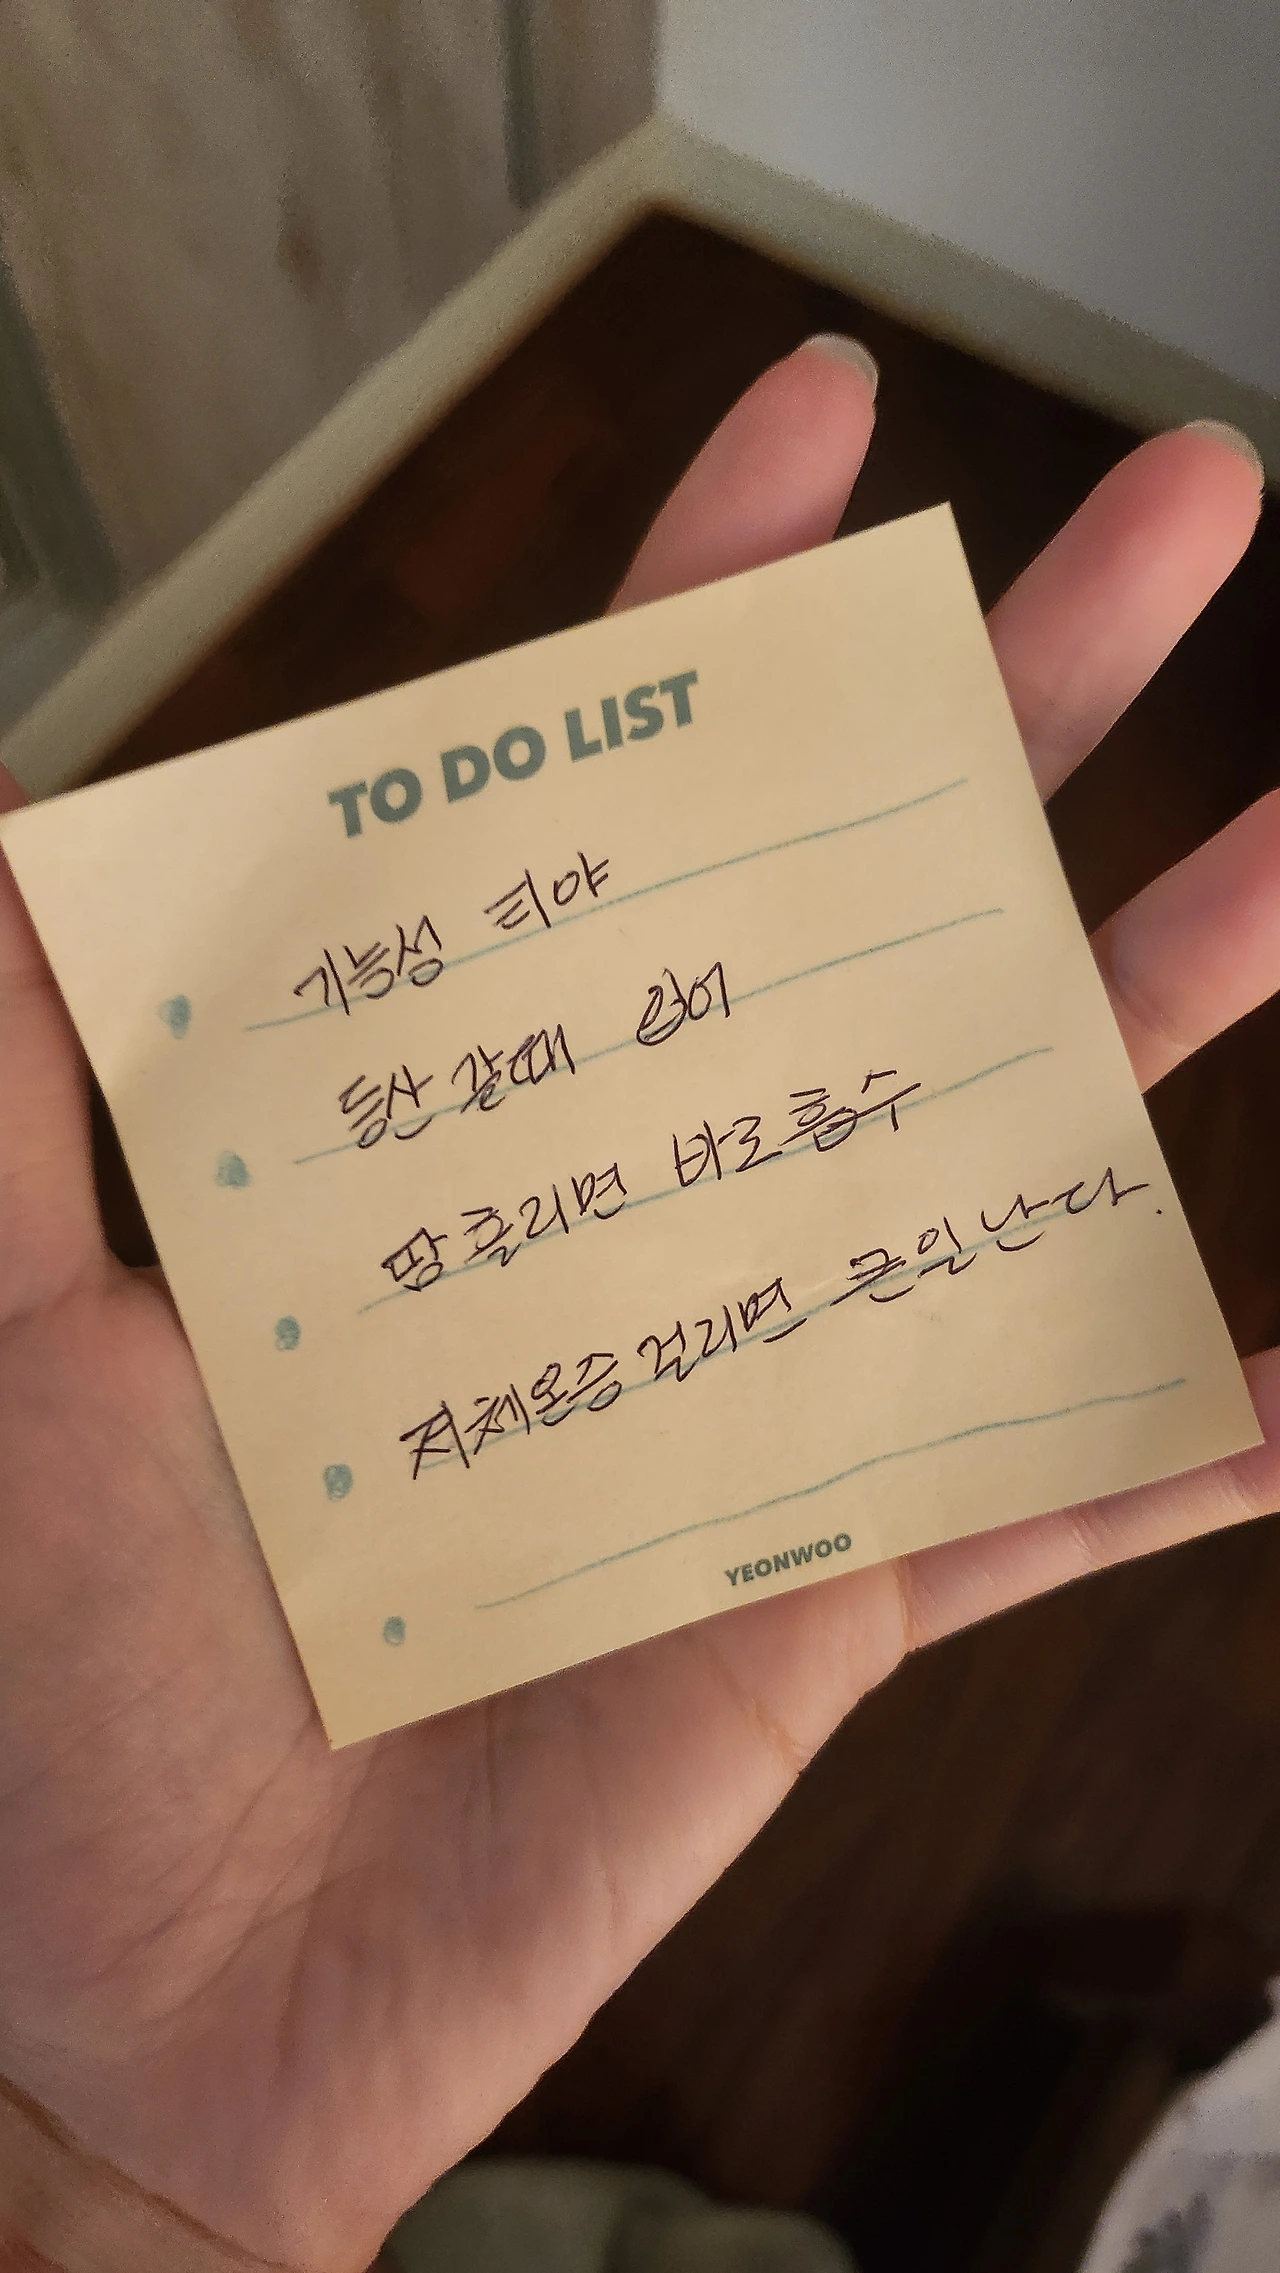 TO DO LIST
기능성 티야
등산 갈때 입어
땀 흘리면 바로 흡수
저체온증 걸리면 큰일 난다.
YEONWOO